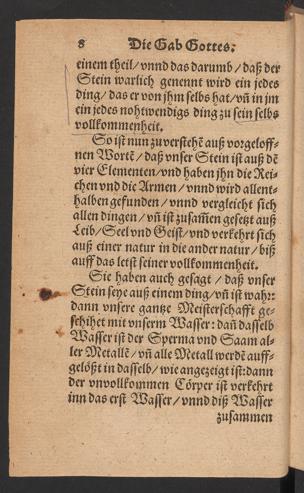 8 Die Gab Gottes:
einem theil/ vnnd das darumb/ daß der
Stein warlich genennt wird ein jedes
ding/ das er von jhm selbs hat/ vñ in jm
ein jedes nohtwendigs ding zu sein selbs
vollkommenheit.
So ist nun zuversteht̃ auß vorgeloff-
nen Wortẽ/ daß vnser Stein ist auß dẽ
vier Elementen/ vnd haben jhn die Rei-
chen vnd die Armen/ vnnd wird allent-
halben gefunden/ vnnd vergleicht sich
allen dingen/ vñ ist zusam̃en gesetzt auß
Leib/ Seel vnd Geist/ vnd verkehrt sich
auß einer natur in die ander natur/ biß
auff das letst seiner vollkommenheit.
Sie haben auch gesagt/ daß vnser
Stein seye auß einem ding/ vñ ist wahr:
dann vnsere gantze Meisterschafft ge-
schihet mit vnserm Wasser: dañ dasselb
Wasser ist der Sperma vnd Saam al-
ler Metallẽ/ vñ alle Metall werdẽ auff-
gelößt in dasselb/ wie angezeigt ist: dann
der vnvollkommen Cörper ist verkehrt
inn das erst Wasser/ vnnd diß Wasser
zusammen